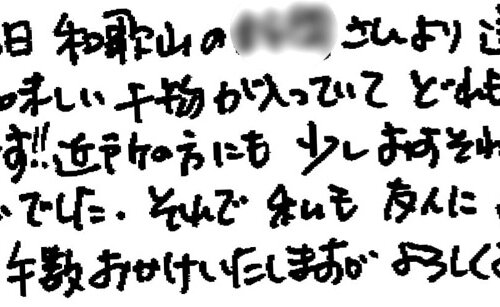 日 和歌山の さんより
味しい 干物が入っていて どれも
す!!近所の方にも 少しおすそわ
でした. それで 私も 友人に
手数おかけいたしますが よろしく